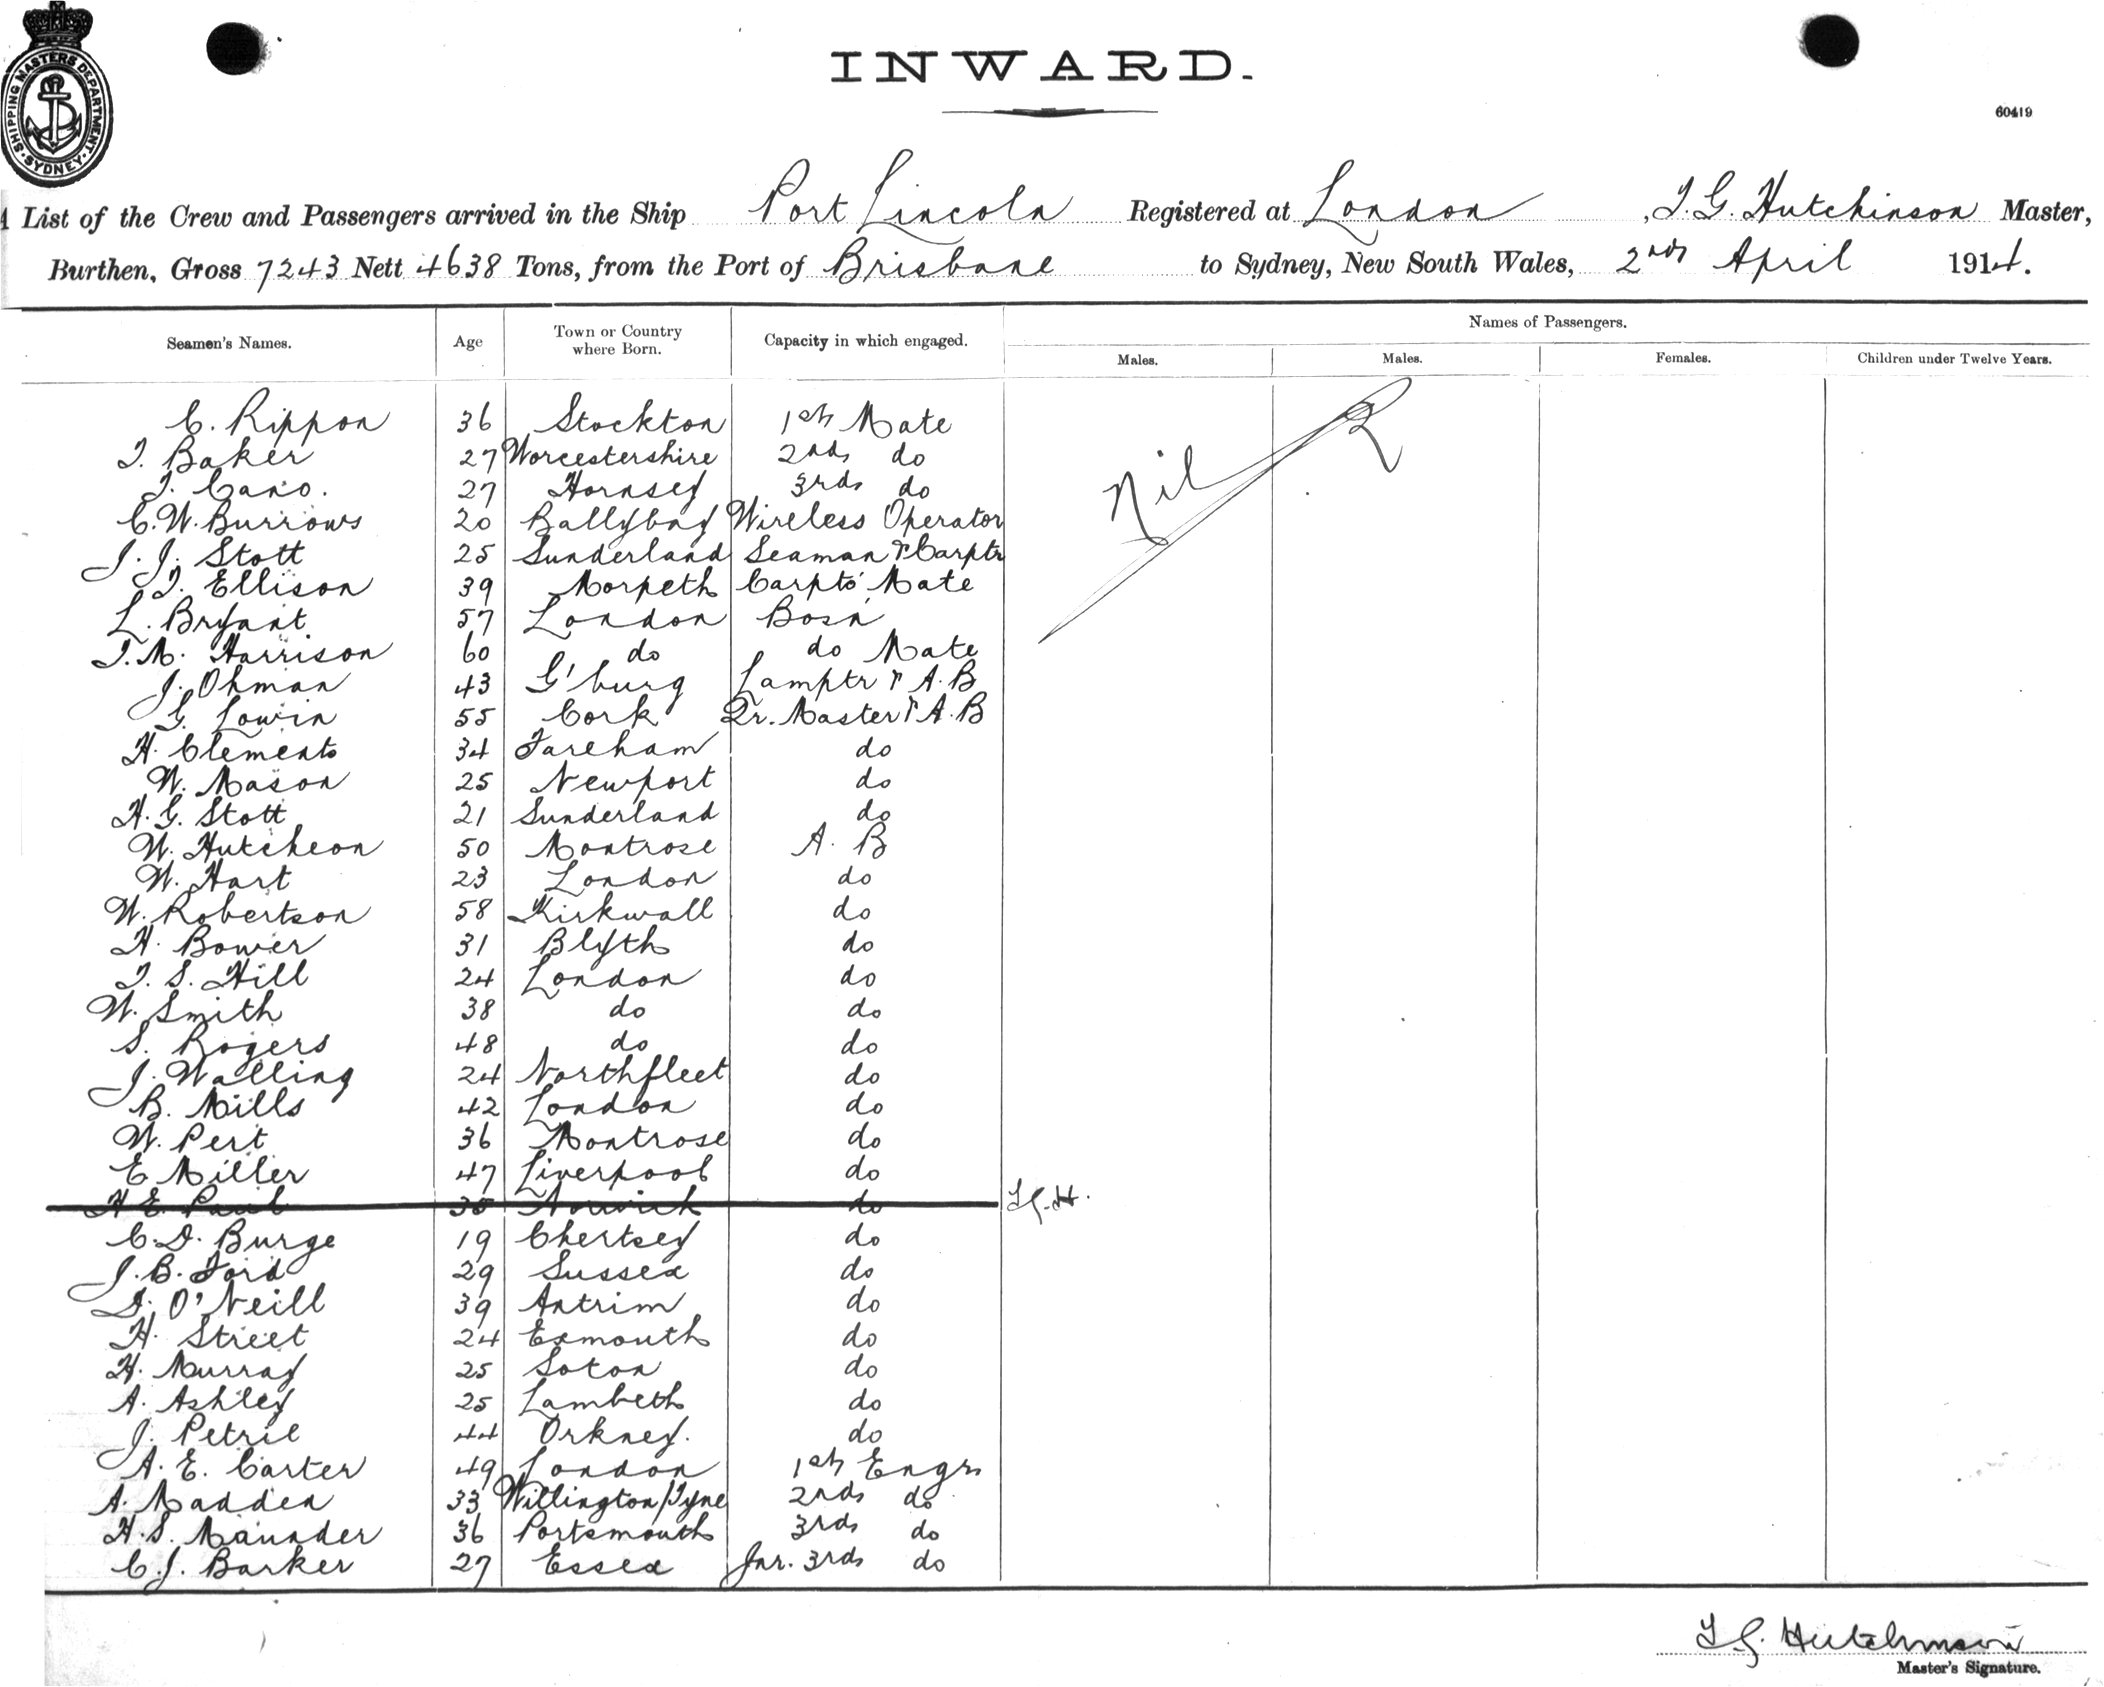 SHIPPING MASTERS DEPARTMENT · SYDNEY ·
INWARD.
60419
List of the Crew and Passengers arrived in the Ship Port Lincoln Registered at London , T. G. Hutchinson Master,
Burthen, Gross 7243 Nett 4638 Tons, from the Port of Brisbane to Sydney, New South Wales, 2nd April 1914.
Seamen's Names. Age Town or Country where Born. Capacity in which engaged. Names of Passengers.
Males. Males. Females. Children under Twelve Years.
C. Rippon 36 Stockton 1st Mate
T. Baker 27 Worcestershire 2nd do
T. Cano. 27 Hornsey 3rd do
Nil
C. W. Burrows 20 Ballybay Wireless Operator
J. J. Stott 25 Sunderland Seaman & Carptr
T. Ellison 39 Morpeth Carpts' Mate
L. Bryant 57 London Bosn
T. M. Harrison 60 do do Mate
J. Ohman 43 G'burg Lamptr & A. B
G. Lowin 55 Cork Qr. Master & A. B
H. Clements 34 Fareham do
W. Mason 25 Newport do
H. G. Stott 21 Sunderland do
W. Hutcheon 50 Montrose A. B
W. Hart 23 London do
W. Robertson 58 Kirkwall do
H. Bower 31 Blyth do
T. S. Hill 24 London do
W. Smith 38 do do
S. Rogers 48 do do
J. Walling 24 Northfleet do
B. Mills 42 London do
W. Pert 36 Montrose do
E Miller 47 Liverpool do
H E. Paul 35 Norwich do T.G.H.
C. D. Burge 19 Chertsey do
J. B. Ford 29 Sussex do
D. O'Neill 39 Antrim do
H. Street 24 Exmouth do
H. Murray 25 Soton do
A. Ashley 25 Lambeth do
J. Petrie 44 Orkney. do
A. E. Carter 49 London 1st Engr
A. Madden 33 Willington/Tyne 2nd do
H. S. Maunder 36 Portsmouth 3rd do
C. J. Barker 27 Essex Jnr. 3rd do
T G. Hutchinson
Master's Signature.